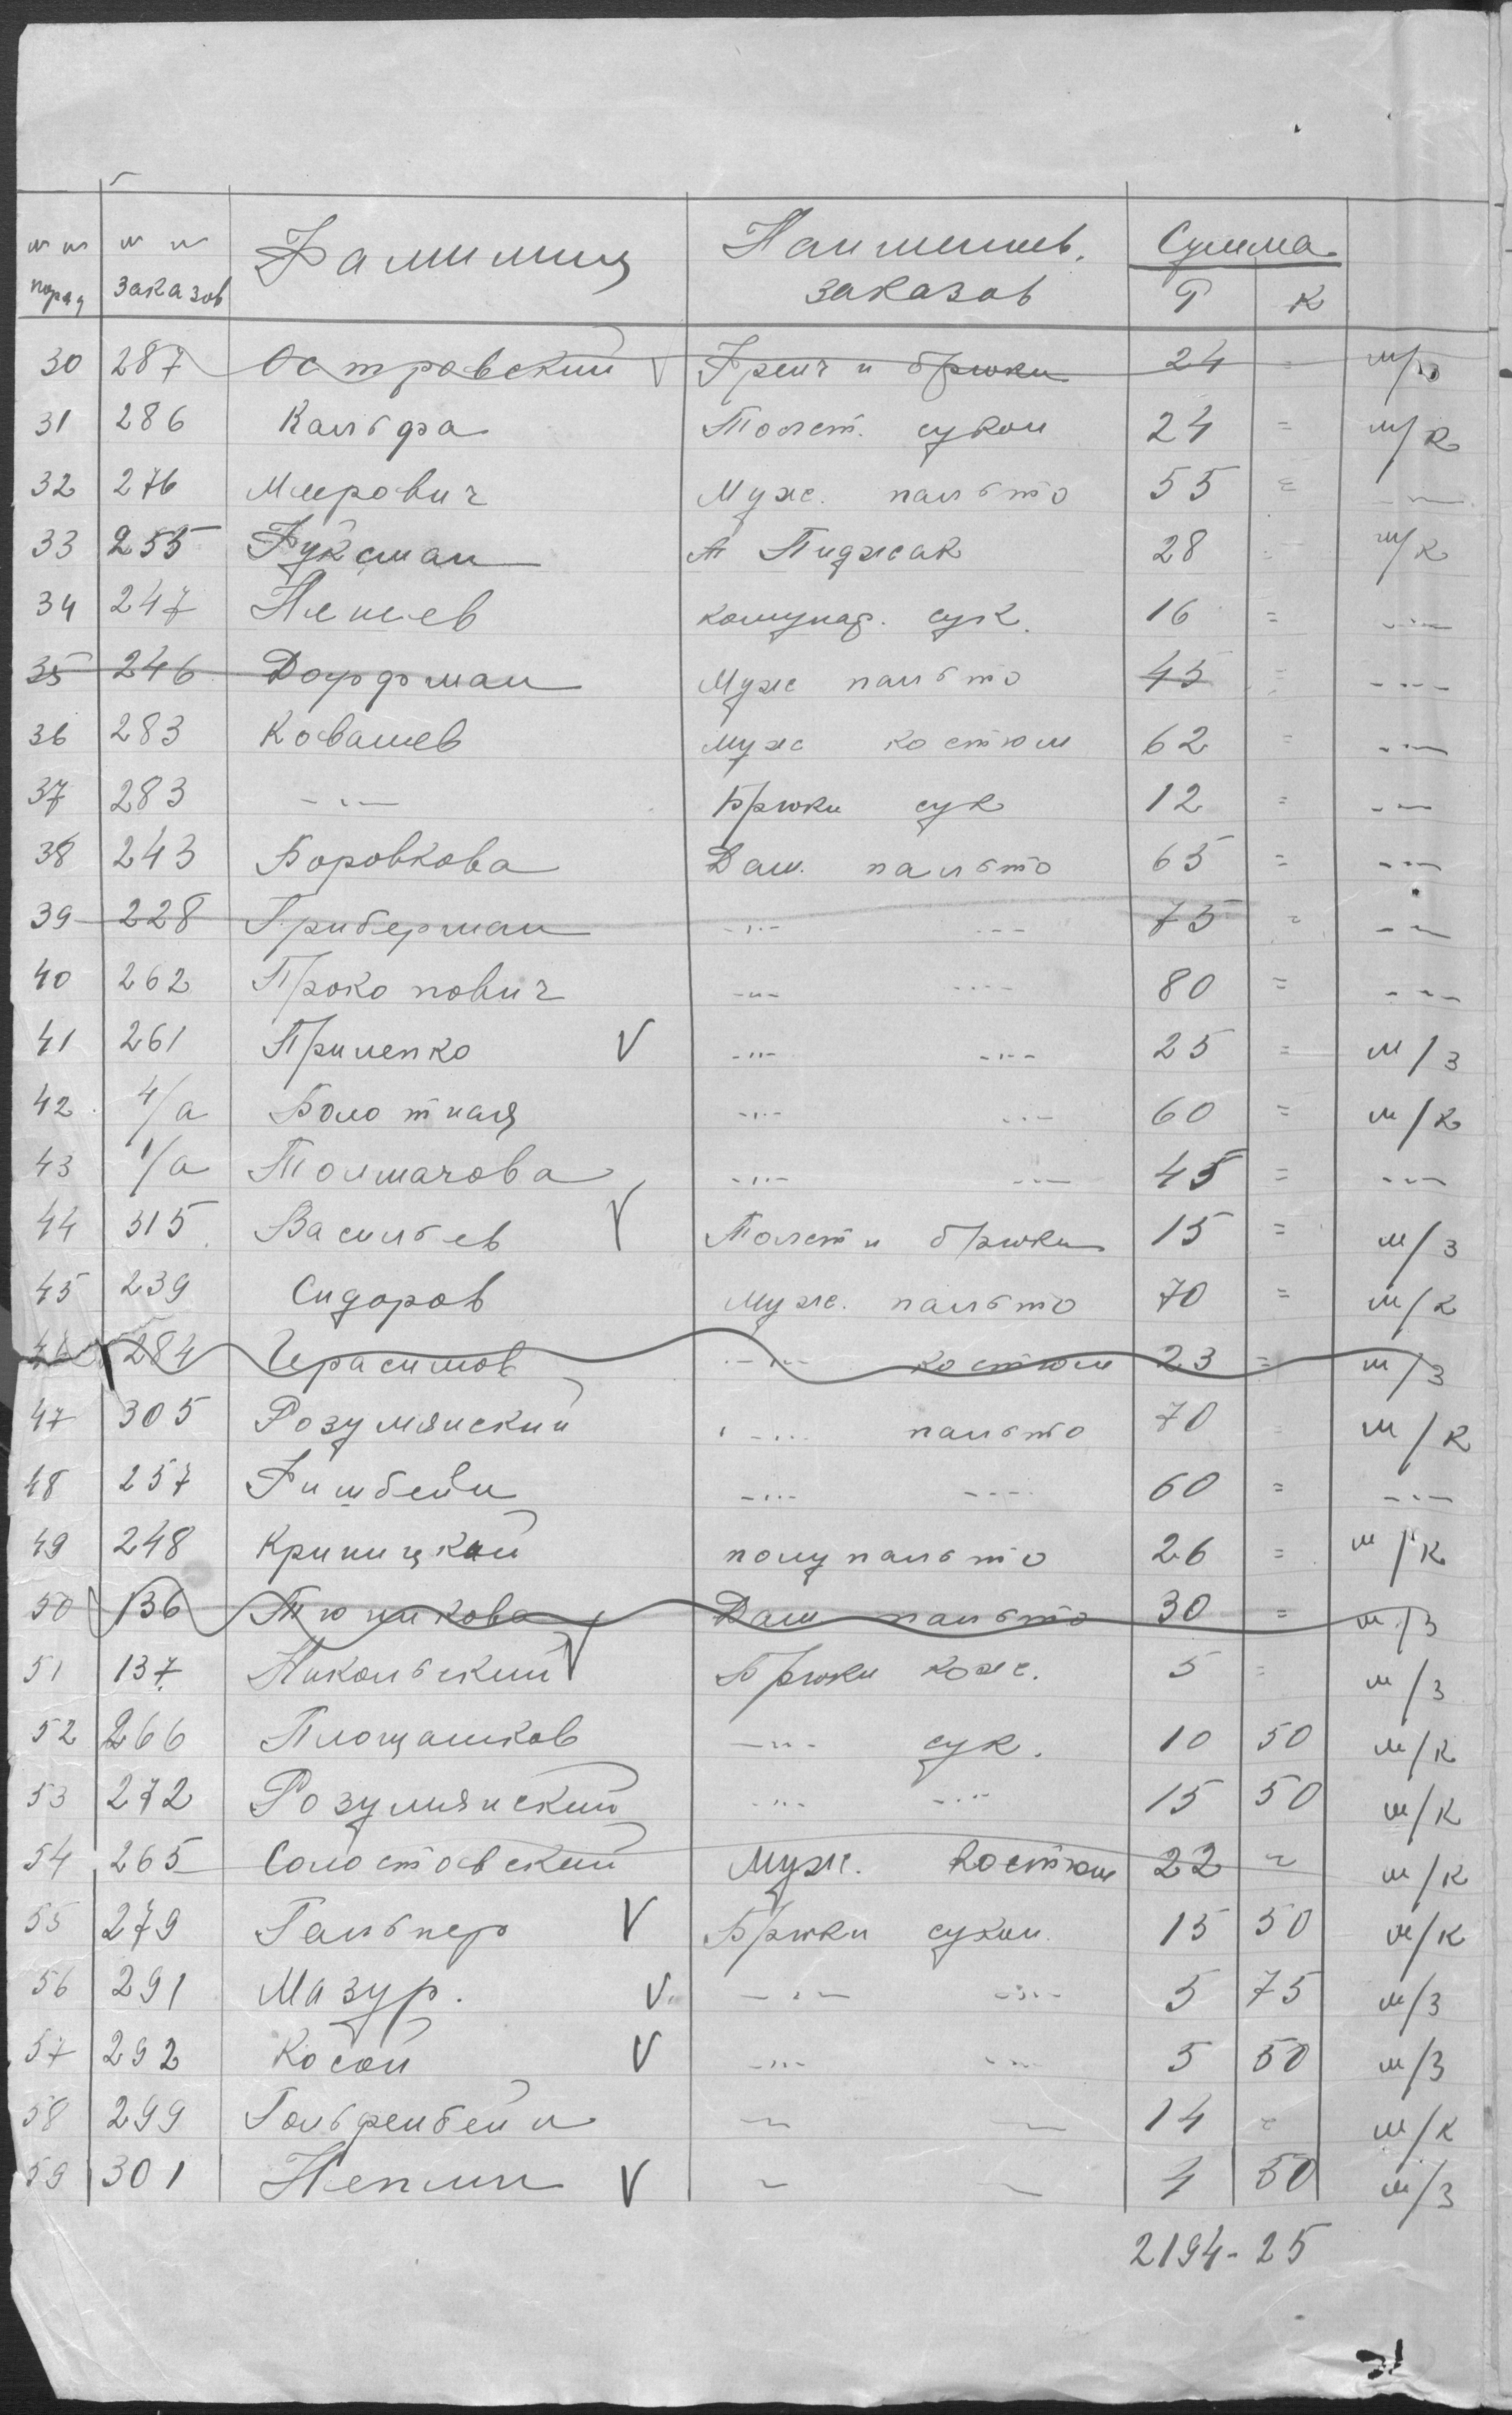 № № поряд № № заказов Фамилия Наименов. заказов Сумма Р К
30 287 Островский V Френч и брюки 24 = м/з
31 286 Кальфа Толст. сукон 24 = м/к
32 276 Меерович Муж. пальто 55 = -"-
33 255 Фуксман Пиджак 28 = м/к
34 247 сук. 16 = -"-
35 246 Дорфман Муж пальто 45 = -"-
36 283 Ковалев муж костюм 62 = -"-
37 283 -"- Брюки сук 12 = -"-
38 243 Боровкова Дам. пальто 65 = -"-
39 228 Гриберман -"- -"- 75 = -"-
40 262 Прокопович -"- -"- 80 = -"-
41 261 Прилепко V -"- -"- 25 = м/з
42 4/а Болотная -"- -"- 60 = м/к
43 1/а Толмачова -"- -"- 45 = -"-
44 315 Васильев V Толст и брюки 15 = м/з
45 239 Сидоров Муж. пальто 70 = м/к
46 284 Герасимов -"- костюм 23 = м/з
47 305 Розумянский -"- пальто 70 = м/к
48 257 Фишбейн -"- -"- 60 = -"-
49 248 Криницкий полупальто 26 = м/к
50 136 Дам пальто 30 = м/з
51 137 Никольский V Брюки кож. 5 = м/з
52 266 Площанков -"- сук. 10 50 м/к
53 272 Розумянский -"- -"- 15 50 м/к
54 265 Солостовский Муж. костюм 22 = м/к
55 279 Гальпер V Брюки сукон 15 50 м/к
56 291 Мазур. V -"- -"- 5 75 м/з
57 292 Косой V -"- -"- 5 50 м/з
58 299 Гольфенбейн -"- -"- 14 = м/к
59 301 Неплин V -"- -"- 4 50 м/з
2194-25